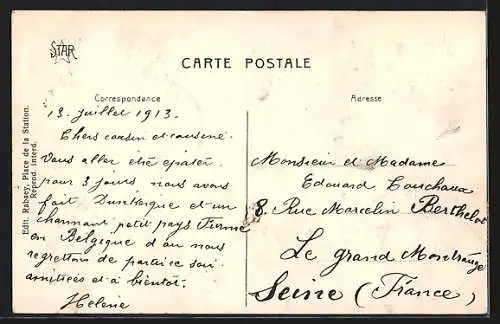 STAR
CARTE POSTALE
Correspondance
Adresse
Edit. Rabaey, Place de la Station.
Reprod. interd.
13. Juillet 1913.
Chers cousin et cousine
Vous aller être épatés.
pour 3 jours nous avons
fait Dunkerque et un
charmant petit pays Furne
en Belgique d'où nous
regrettons de partir ce soir
amitiées et à bientôt.
Helène
Monsieur et Madame
Edouard Couchaux
8. Rue Marcelin Berthelot
Le grand Montrouge
Seine (France)